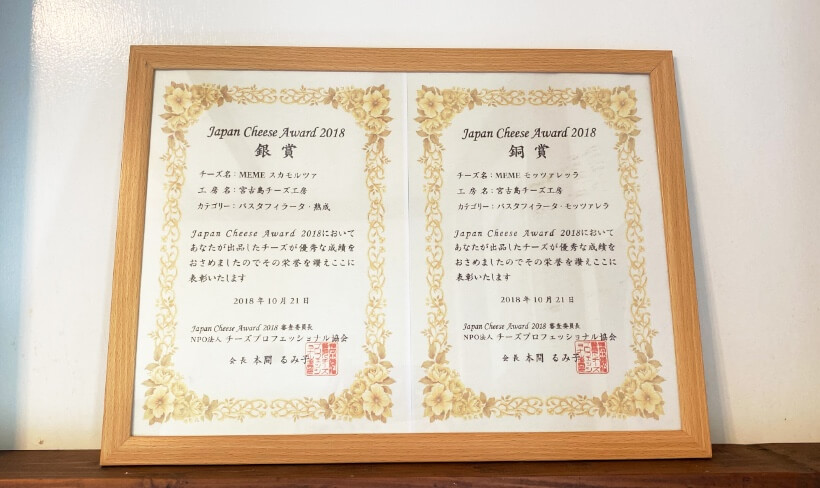 Japan Cheese Award 2018
銀賞
チーズ名：MEME スカモルツァ
工房名：宮古島チーズ工房
カテゴリー：パスタフィラータ・熟成
Japan Cheese Award 2018において
あなたが出品したチーズが優秀な成績を
おさめましたのでその栄誉を讃えここに
表彰いたします
2018年10月21日
Japan Cheese Award 2018 審査委員長
NPO法人 チーズプロフェッショナル協会
会長 本間 るみ子
Japan Cheese Award 2018
銅賞
チーズ名：MEME モッツァレッラ
工房名：宮古島チーズ工房
カテゴリー：パスタフィラータ・モッツァレラ
Japan Cheese Award 2018において
あなたが出品したチーズが優秀な成績を
おさめましたのでその栄誉を讃えここに
表彰いたします
2018年10月21日
Japan Cheese Award 2018 審査委員長
NPO法人 チーズプロフェッショナル協会
会長 本間 るみ子